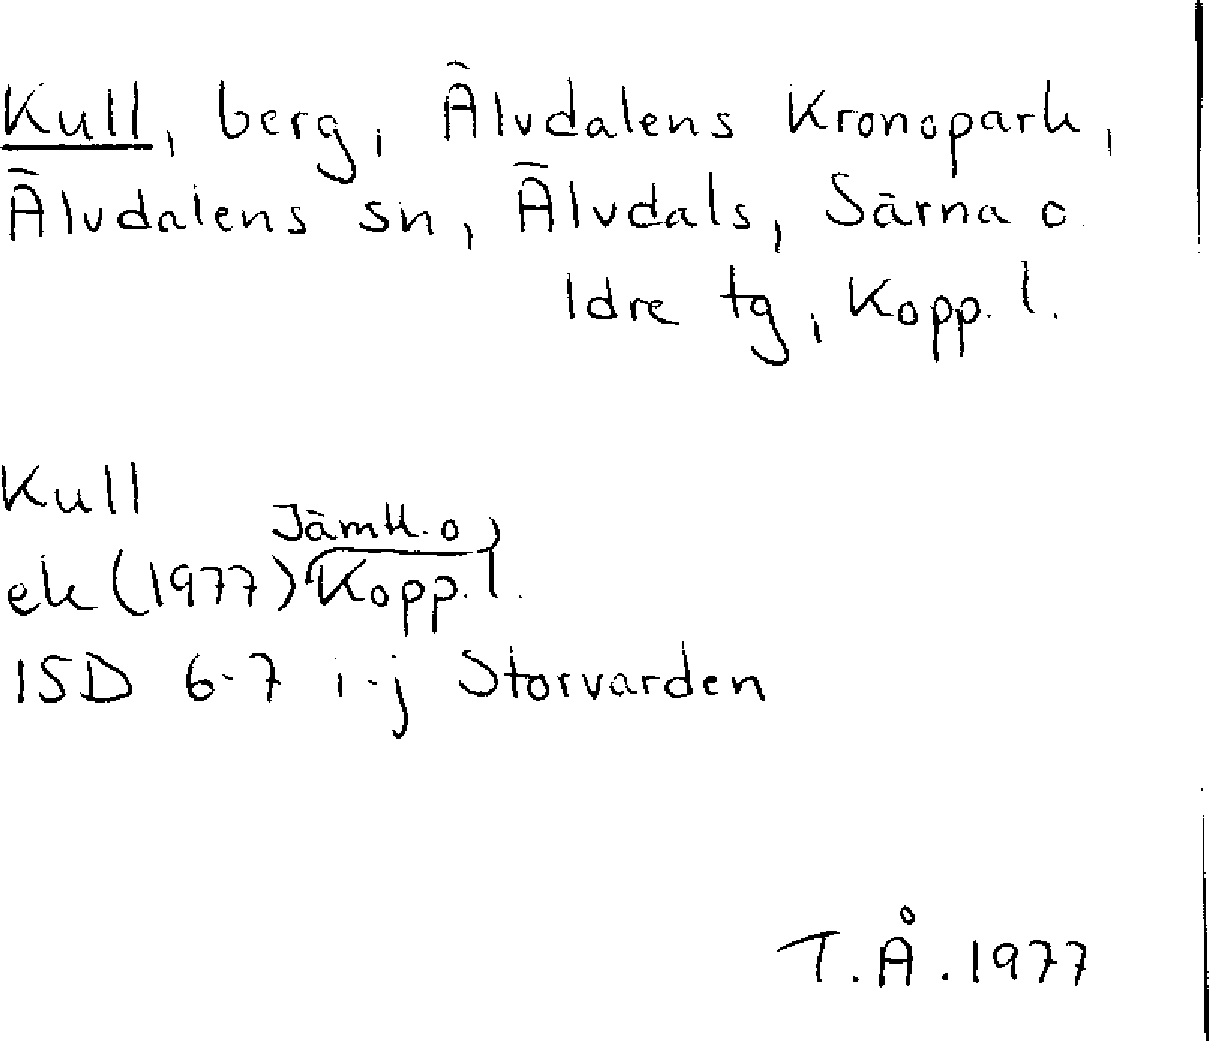 Kull, berg, Älvdalens Kronopark,
Älvdalens sn, Älvdals, Särna o
Idre tg, Kopp. l.
Kull
Jämtl. o
ek (1977) Kopp. l.
15D 6-7 i-j Storvarden
T.Å.1977